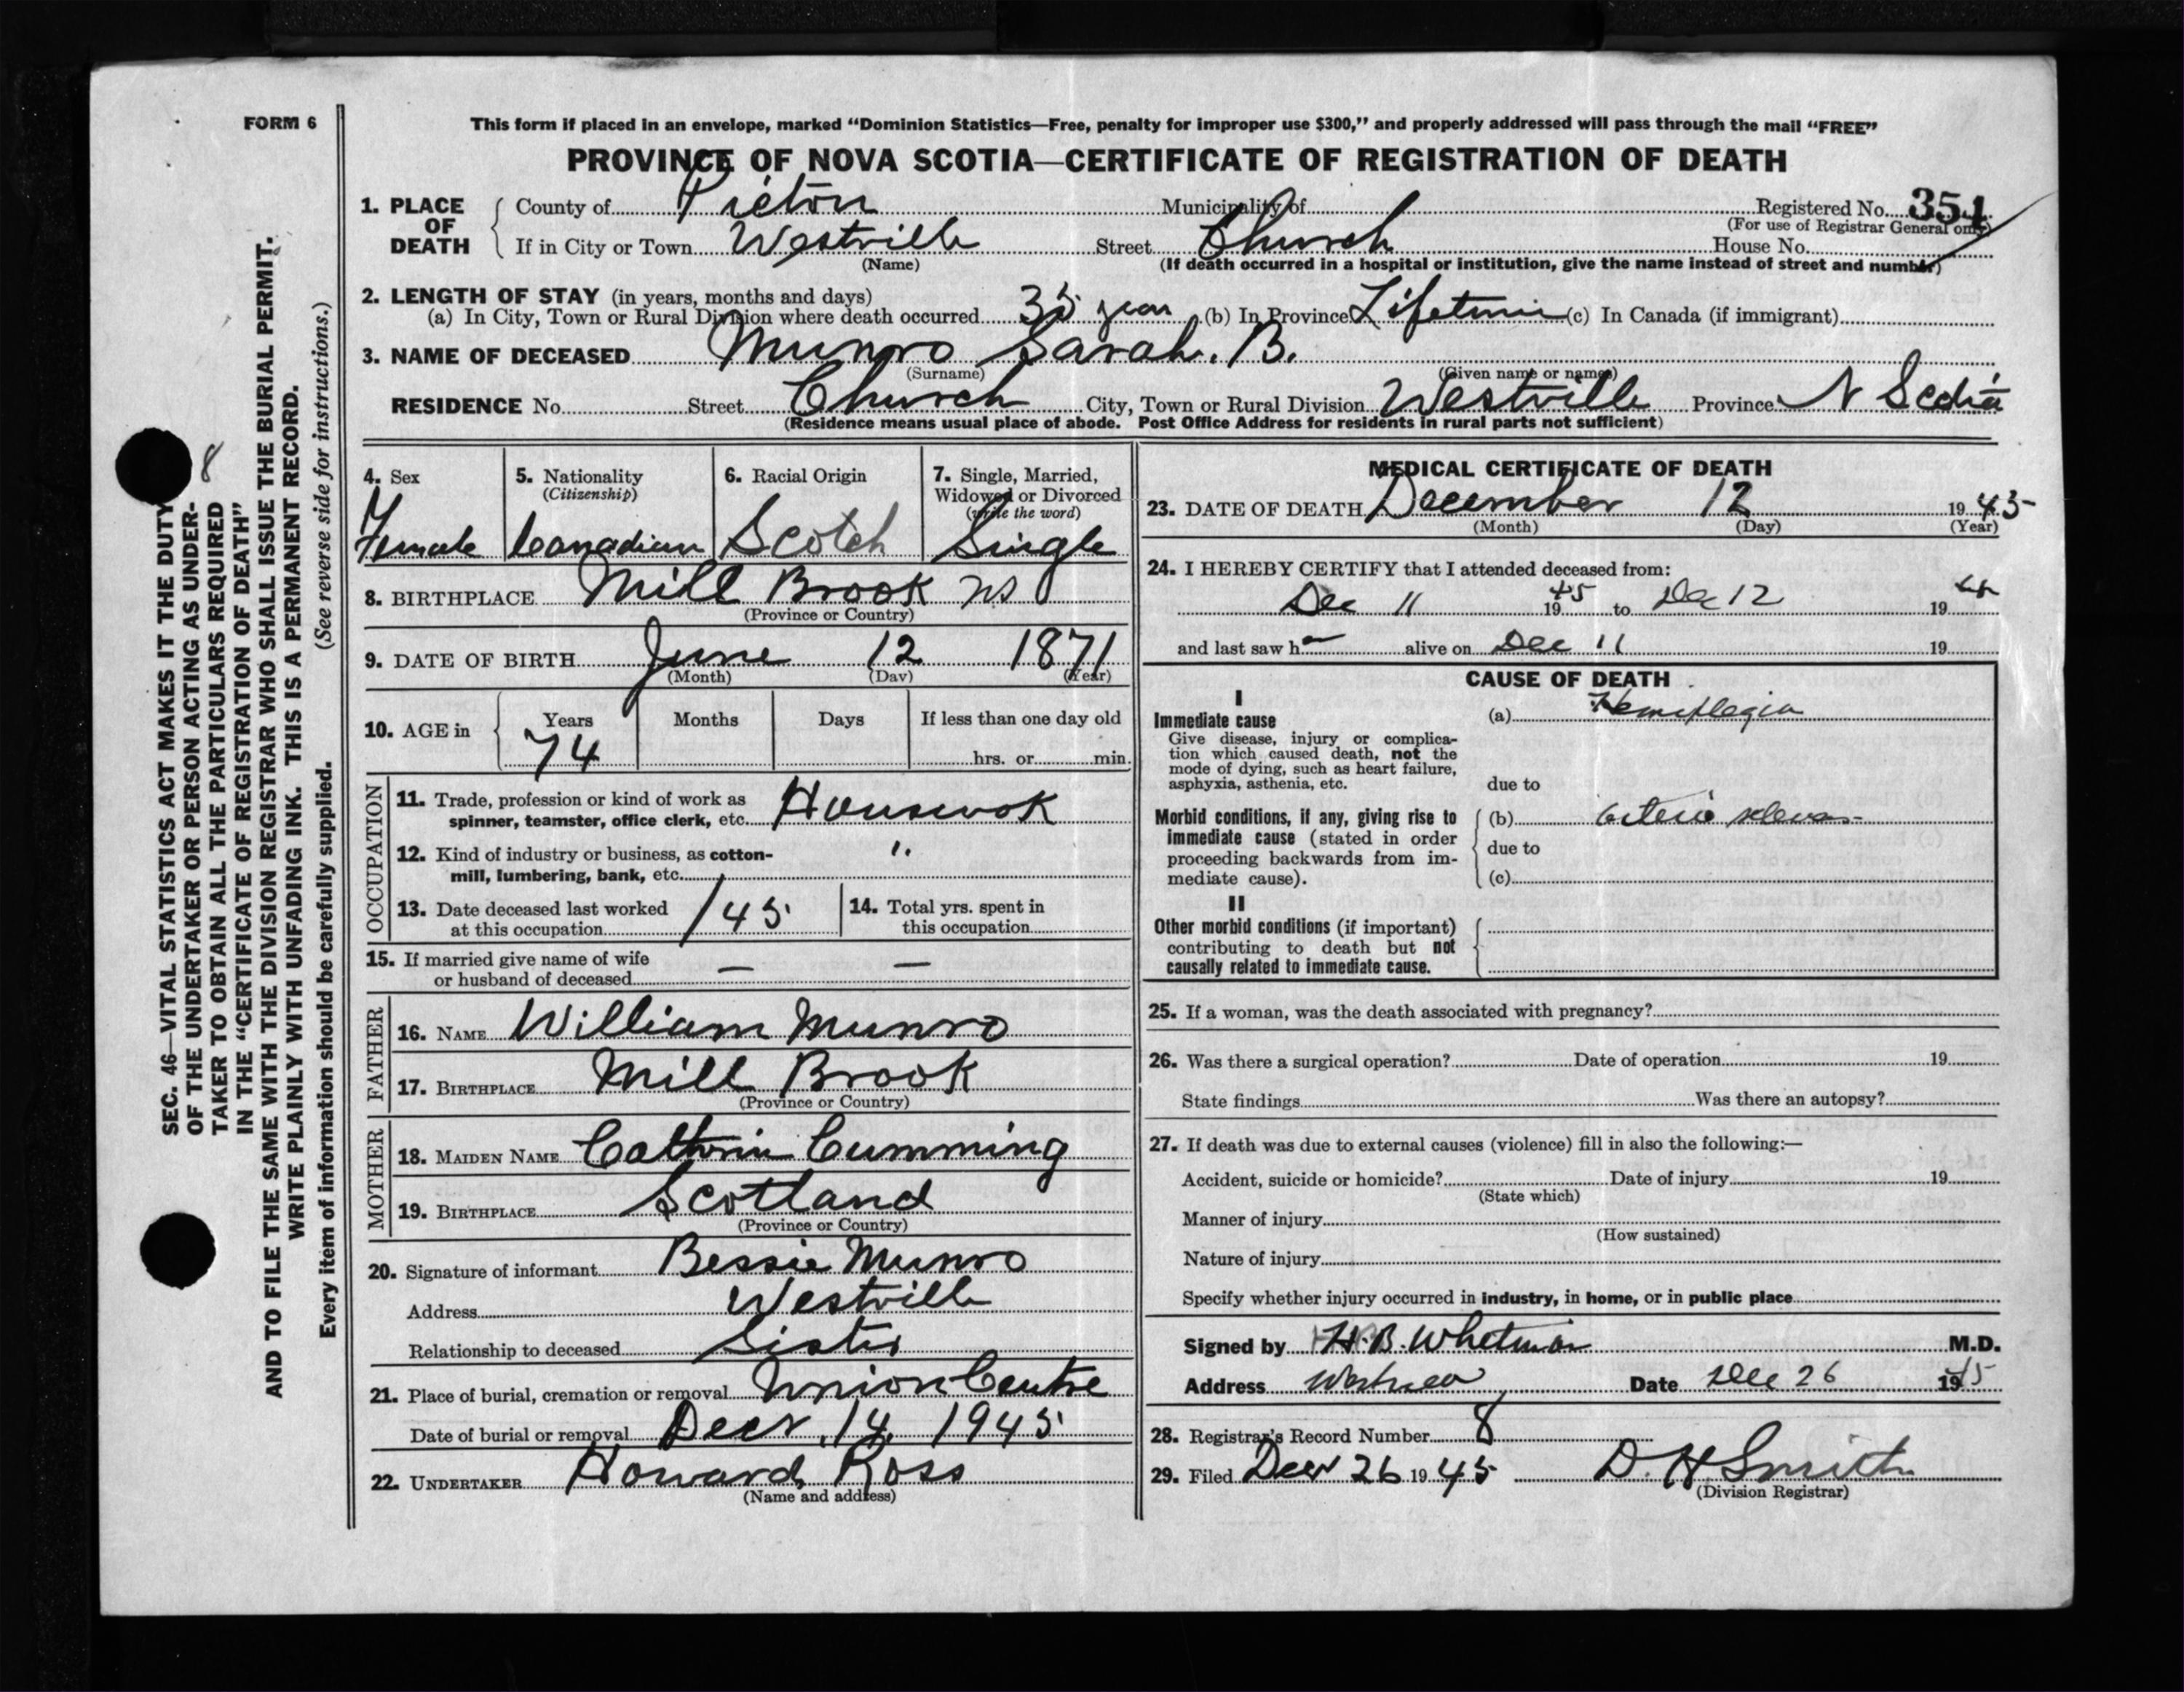 FORM 6
This form if placed in an envelope, marked “Dominion Statistics—Free, penalty for improper use $300,” and properly addressed will pass through the mail “FREE”
PROVINCE OF NOVA SCOTIA—CERTIFICATE OF REGISTRATION OF DEATH
1. PLACE OF DEATH County of Pictou Municipality of Registered No. 354
(For use of Registrar General only)
If in City or Town Westville Street Church House No.
(Name) (If death occurred in a hospital or institution, give the name instead of street and number)
2. LENGTH OF STAY (in years, months and days)
(a) In City, Town or Rural Division where death occurred 35 year (b) In Province Lifetime (c) In Canada (if immigrant)
3. NAME OF DECEASED Munro Sarah. B.
(Surname) (Given name or names)
RESIDENCE No. Street Church City, Town or Rural Division Westville Province N Scotia
(Residence means usual place of abode. Post Office Address for residents in rural parts not sufficient)
4. Sex Female
5. Nationality (Citizenship) Canadian
6. Racial Origin Scotch
7. Single, Married, Widowed or Divorced (write the word) Single
8. BIRTHPLACE Mill Brook NS
(Province or Country)
9. DATE OF BIRTH June 12 1871
(Month) (Day) (Year)
10. AGE in Years Months Days If less than one day old
74 hrs. or min.
OCCUPATION
11. Trade, profession or kind of work as
spinner, teamster, office clerk, etc. Housewok
12. Kind of industry or business, as cotton- "
mill, lumbering, bank, etc.
13. Date deceased last worked
at this occupation 145
14. Total yrs. spent in
this occupation
15. If married give name of wife
or husband of deceased — —
FATHER
16. NAME William Munro
17. BIRTHPLACE Mill Brook
(Province or Country)
MOTHER
18. MAIDEN NAME Cathrin Cumming
19. BIRTHPLACE Scotland
(Province or Country)
20. Signature of informant Bessie Munro
Address Westville
Relationship to deceased Sister
21. Place of burial, cremation or removal Union Centre
Date of burial or removal Decr 14 1945
22. UNDERTAKER Howard Ross
(Name and address)
MEDICAL CERTIFICATE OF DEATH
23. DATE OF DEATH December 12 1945
(Month) (Day) (Year)
24. I HEREBY CERTIFY that I attended deceased from:
Dec 11 1945 to Dec 12 19
and last saw h alive on Dec 11 19
CAUSE OF DEATH
I
Immediate cause (a) Hemiplegia
Give disease, injury or complica-
tion which caused death, not the
mode of dying, such as heart failure,
asphyxia, asthenia, etc. due to
Morbid conditions, if any, giving rise to (b)
immediate cause (stated in order
proceeding backwards from im- due to
mediate cause). (c)
II
Other morbid conditions (if important)
contributing to death but not
causally related to immediate cause.
25. If a woman, was the death associated with pregnancy?
26. Was there a surgical operation? Date of operation 19
State findings Was there an autopsy?
27. If death was due to external causes (violence) fill in also the following:—
Accident, suicide or homicide? Date of injury 19
(State which)
Manner of injury
(How sustained)
Nature of injury
Specify whether injury occurred in industry, in home, or in public place
Signed by H.B. Whitman M.D.
Address Date Dec 26 1945
28. Registrar's Record Number 8
29. Filed Decr 26 1945 D. H Smith
(Division Registrar)
8
SEC. 46—VITAL STATISTICS ACT MAKES IT THE DUTY
OF THE UNDERTAKER OR PERSON ACTING AS UNDER-
TAKER TO OBTAIN ALL THE PARTICULARS REQUIRED
IN THE “CERTIFICATE OF REGISTRATION OF DEATH”
AND TO FILE THE SAME WITH THE DIVISION REGISTRAR WHO SHALL ISSUE THE BURIAL PERMIT.
WRITE PLAINLY WITH UNFADING INK. THIS IS A PERMANENT RECORD.
Every item of information should be carefully supplied. (See reverse side for instructions.)